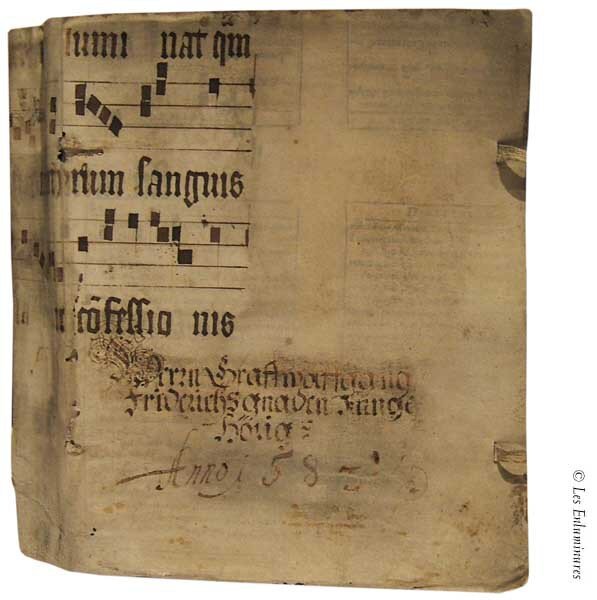 lumi nat qm
rum sanguis
cõfessio nis
Herrn Graff wolffgang
Friderichs gnaden
hörig
Anno 1 5 8
© Les Enluminures